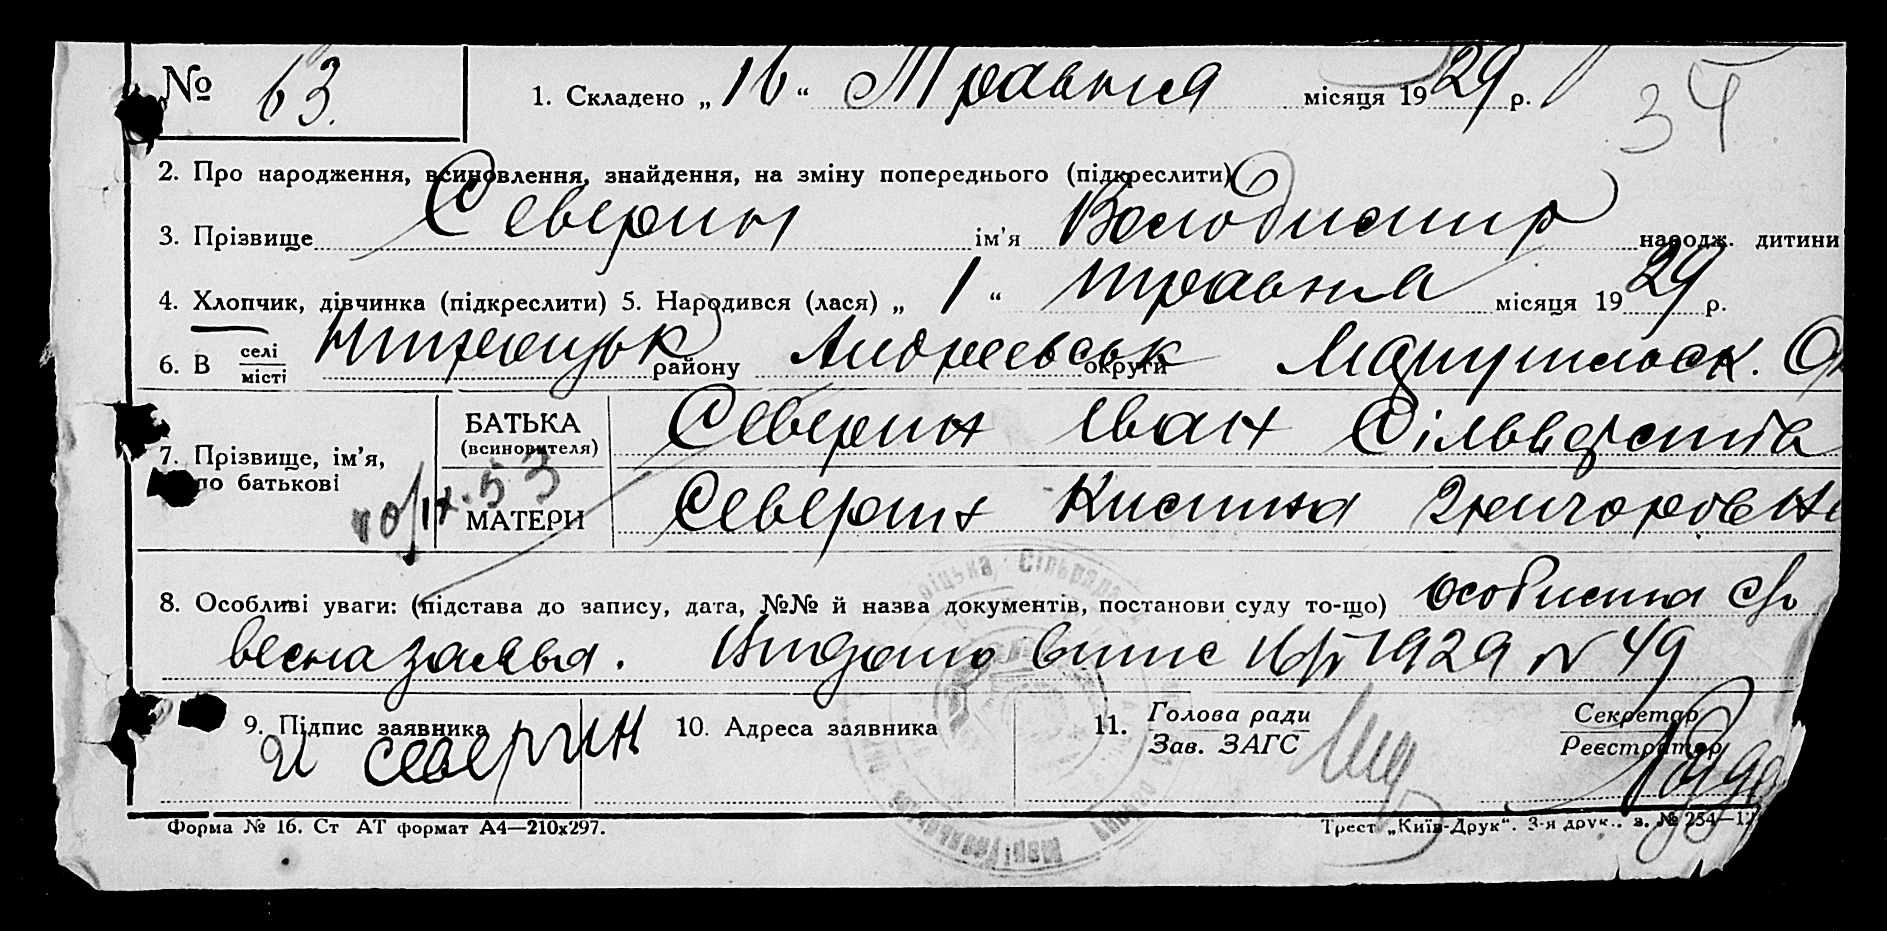 № 63. 1. Складено „16“ Травня місяця 1929 р. 34
2. Про народження, всиновлення, знайдення, на зміну попереднього (підкреслити)
3. Прізвище Северин ім’я Володимир народж. дитини
4. Хлопчик, дівчинка (підкреслити) 5. Народився (лася) „1“ травня місяця 1929 р.
6. В селі місті району Андреевськ округи Маріупольск. Ок
7. Прізвище, ім’я, по батькові
БАТЬКА (всиновителя) Северин Іван Сільвестів
МАТЕРИ Северин Григоровн
53
8. Особливі уваги: (підстава до запису, дата, №№ й назва документів, постанови суду то-що) особиста сло
весна заява. Видано випис 16/V 1929 N 49
9. Підпис заявника 10. Адреса заявника 11. Голова ради Зав. ЗАГС Секретар Реєстратор
И Северин
Форма № 16. Ст АТ формат А4—210х297. Трест „Київ-Друк“. 3-я друк., з. № 254—1